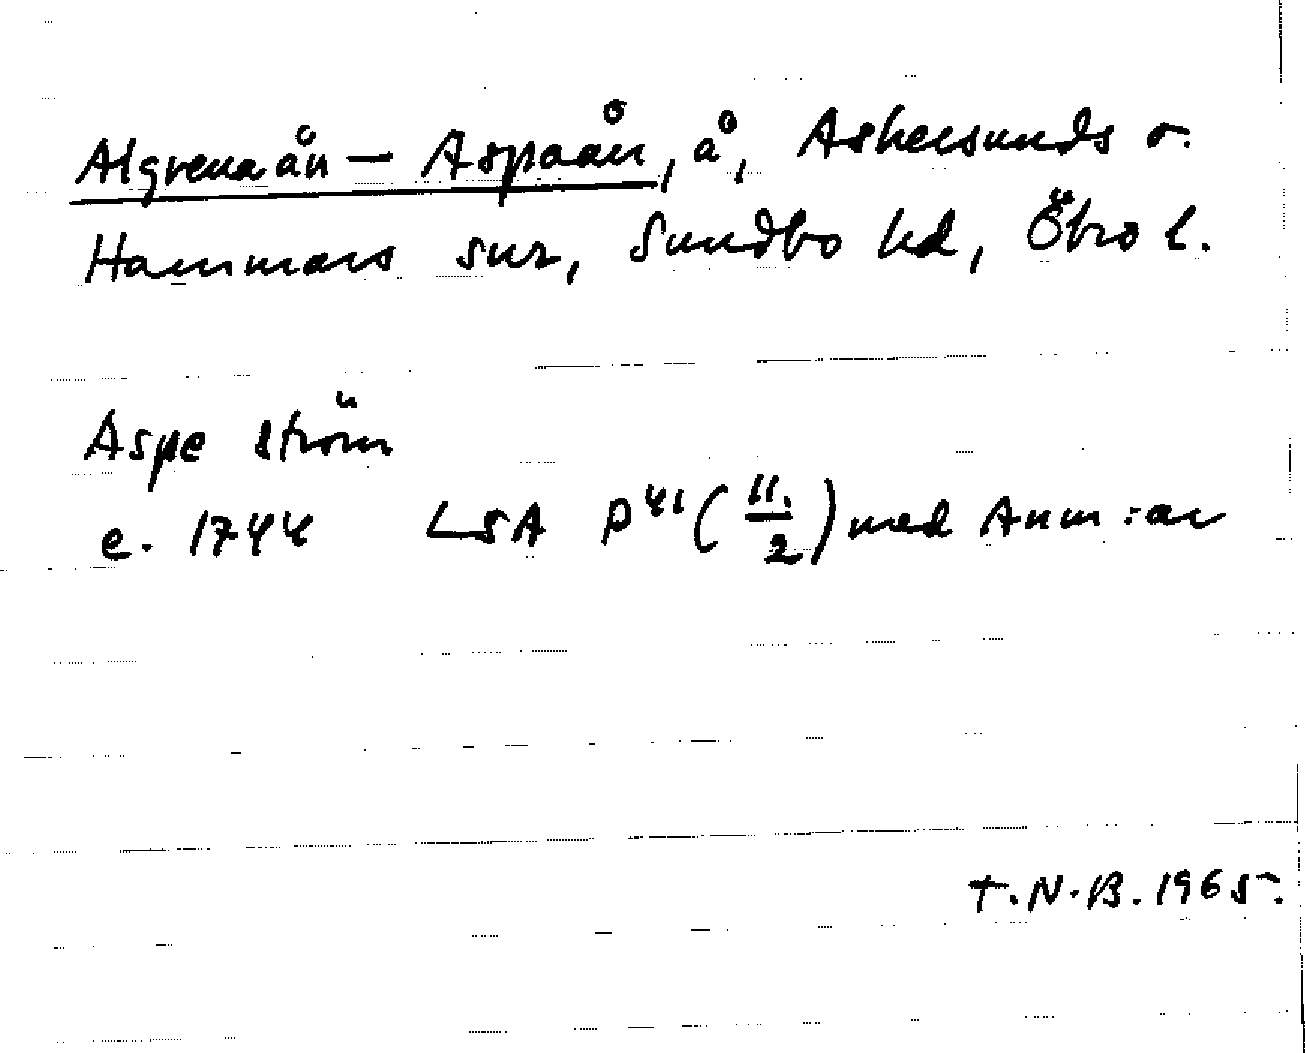 Algrenaån — Aspaån, å, Askersunds o.
Hammars snr, Sundbo hd, Öbro l.
Aspe ström
e. 1744 LSA P41 (11./2) med Anm:ar
T.N.B. 1965.